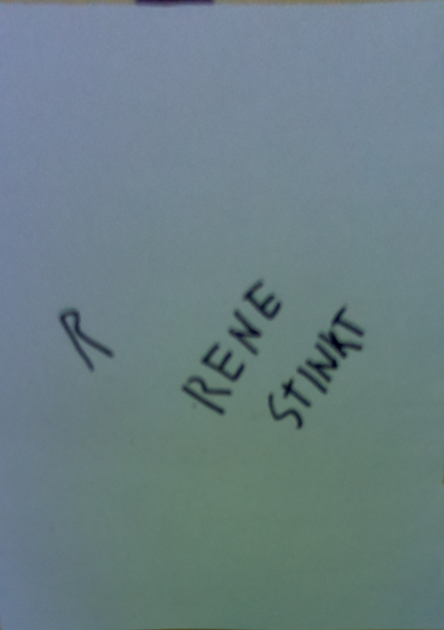 R
RENE
STINKT